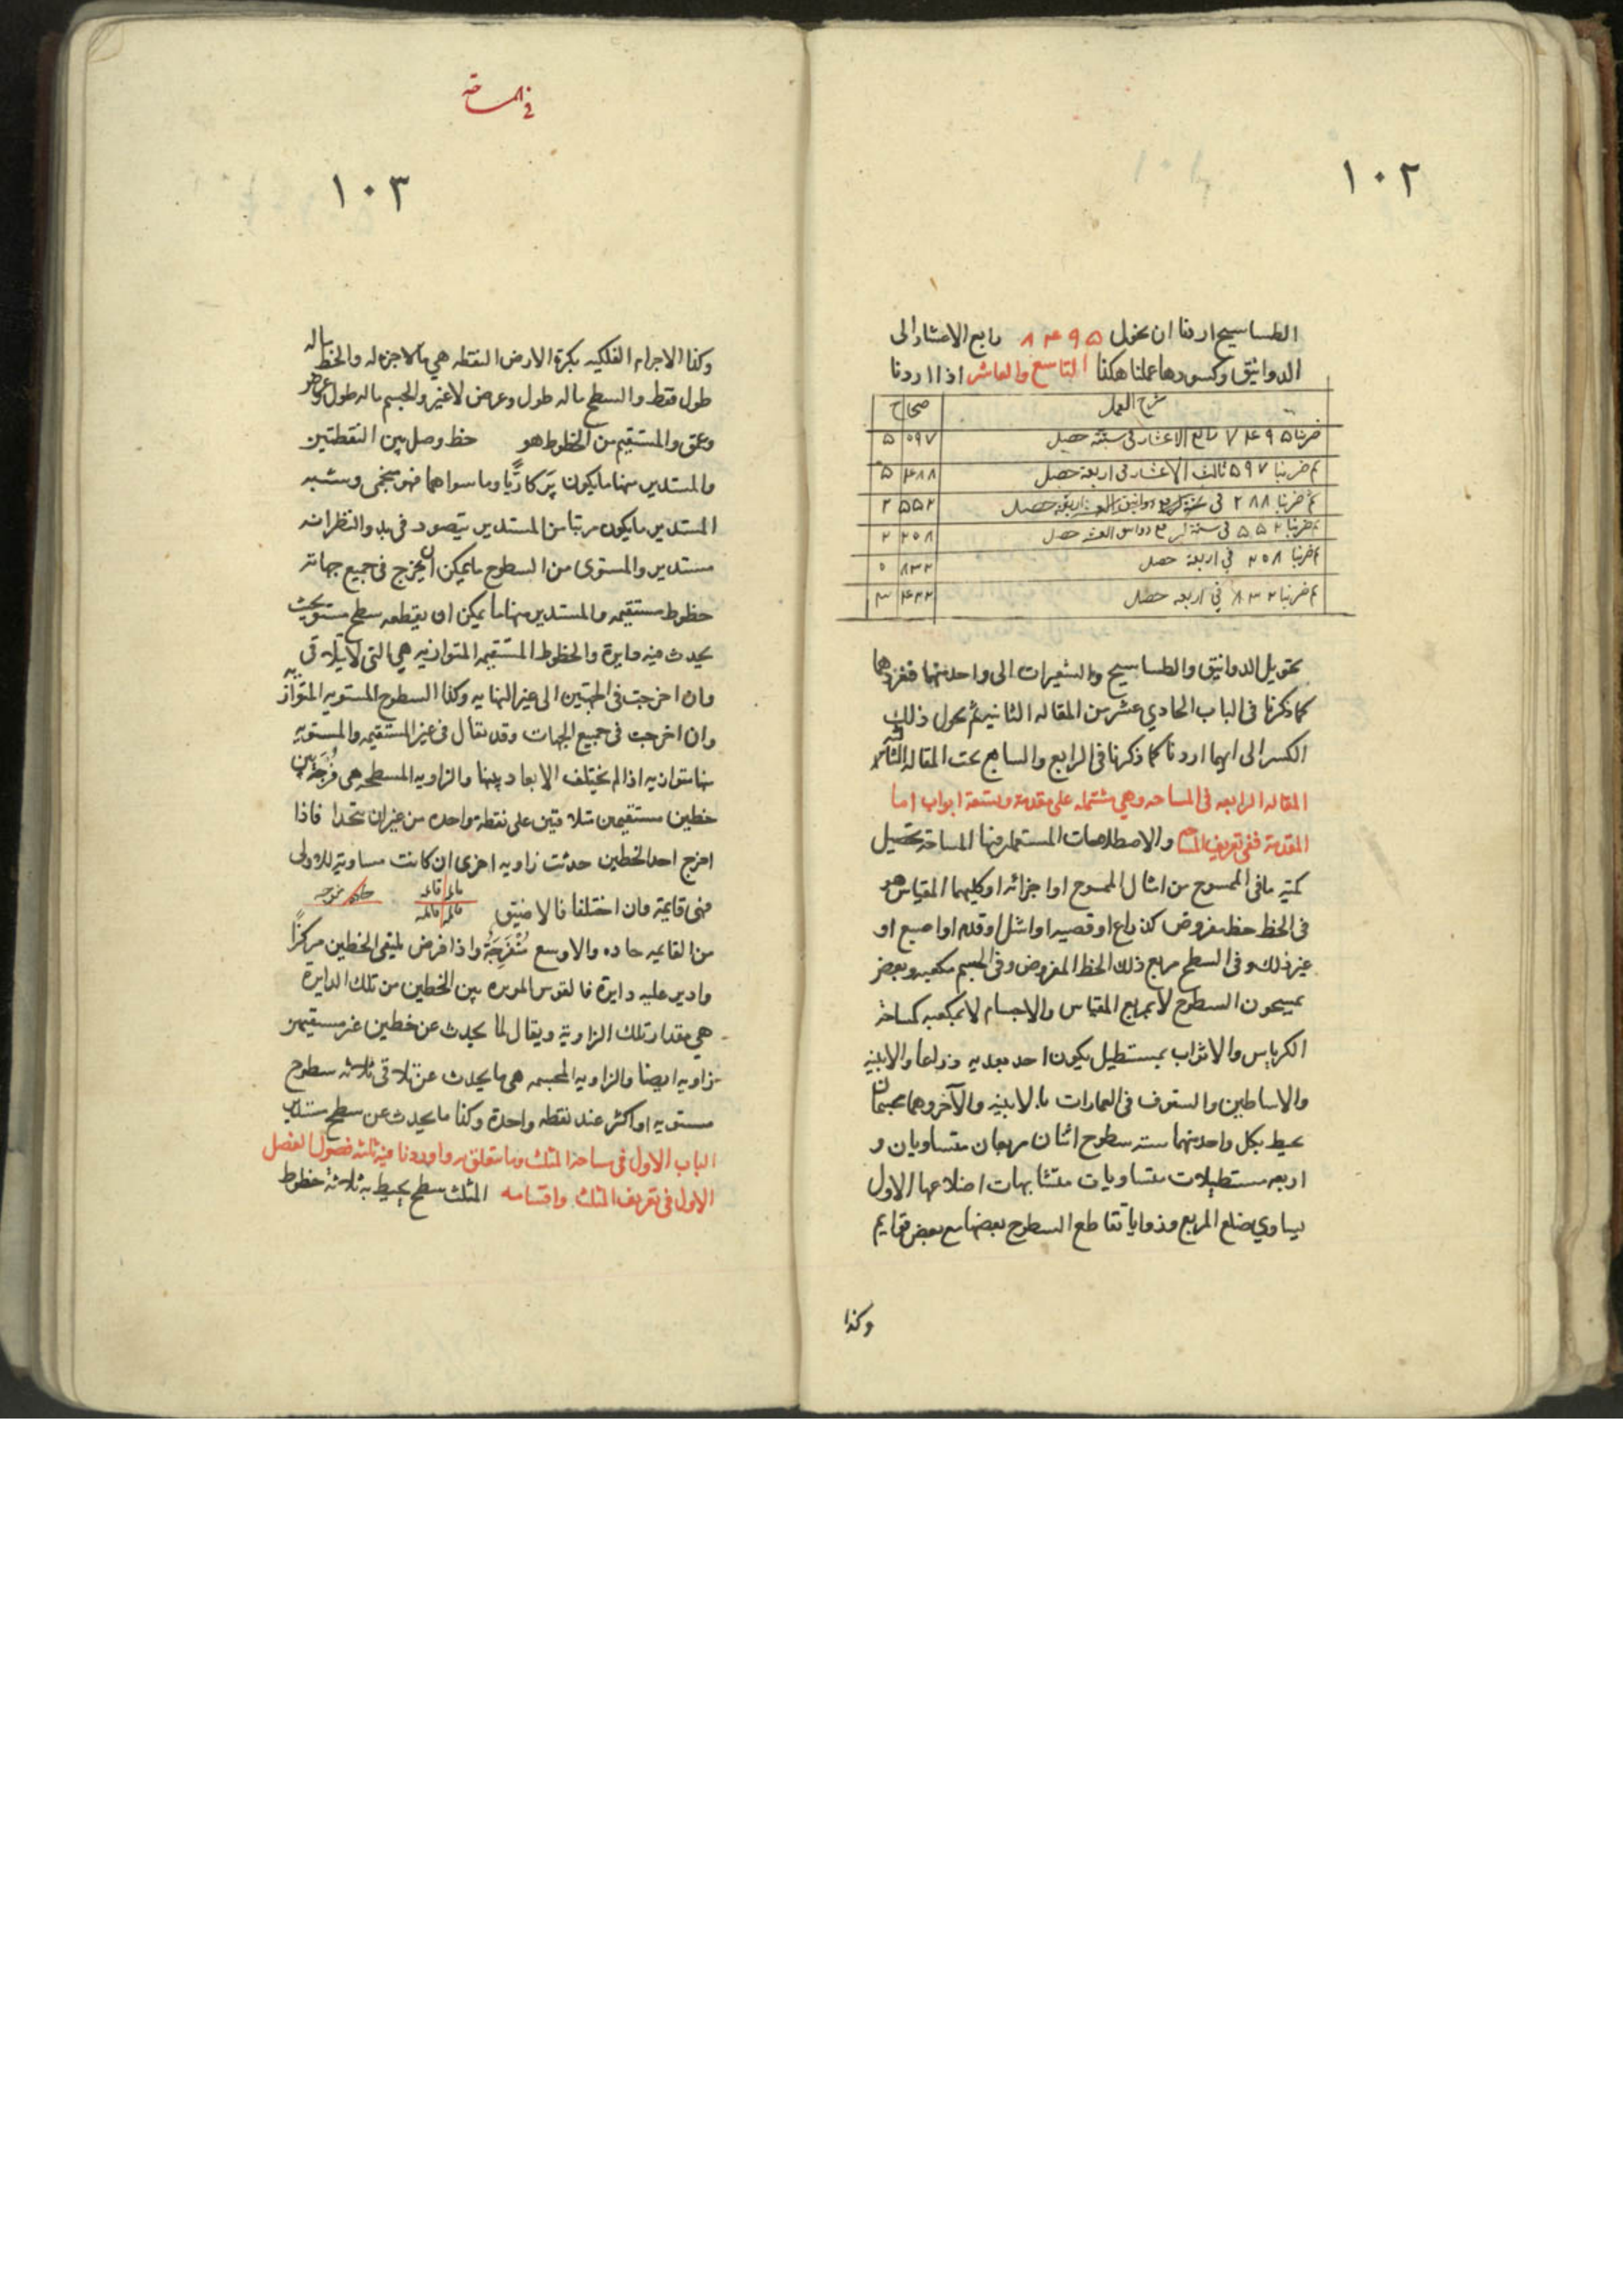 ١٠٢
الطساسيج اردنا ان نحول ٨٤٩٥ رابع الاعشار الى
الدوانيق وكسورها عملنا هكذا التاسع والعاشر اذا اردنا
شرح العمل صحاح
ضربنا ٨٤٩٥ رابع الاعشار فى ستة حصل ٥ ٠٩٧
ثم ضربنا ٥٩٧ ثالث الاعشار فى اربعة حصل ٥ ٤٨٨
ثم ضربنا ٢٨٨ فى حصل ٢ ٥٥٢
ثم ضربنا ٥٥٢ فى ستة حصل ٢ ٢٥٨
ثم ضربنا ٢٥٨ فى اربعة حصل ٥ ٨٣٢
ثم ضربنا ٨٣٢ فى اربعه حصل ٣ ٤٣٢
تحويل الدوانيق والطساسيج والشعيرات الى واحد منها فنفردها
كما ذكرنا فى الباب الحادي عشر من المقاله الثانيه ثم نحول ذلك
الكسر الى ايهما اردنا كما ذكرنا فى الرابع والسابع تمت المقاله الثالثة
المقاله الرابعه فى المساحه وهي مشتمله على مقدمة وتسعة ابواب اما
المقدمة ففى تعريف المساحه والاصطلاحات المستعمله فيها المساحة تحصيل
كمية ما فى الممسوح من امثال الممسوح او اجزائه او كليهما المقياس هو
فى الخط خط مفروض كذراع او قصبه او اشل او قدم او اصبع او
غير ذلك وفى السطح مربع ذلك الخط المفروض وفى الجسم مكعبه وبعض
يمسحون السطوح لا بمربع المقياس والاجسام لا بمكعبه كمساحة
الكرباس والاثواب بمستطيل يكون احد بعديه ذراعا والابنيه
والاساطين والسقوف فى العمارات بالابنيه والآخر وهما مجسمان
يحيط بكل واحد منهما سته سطوح اثنان مربعان متساويان و
اربعه مستطيلات متساويات متشابهات اضلاعها الاول
يساوي ضلع المربع وزوايا تقاطع السطوح بعضها مع بعض قوايم
وكذا
فى المساحة
١٠٣
وكذا الاجرام الفلكيه بكرة الارض النقطه هي ما لا جزء له والخط ما له
طول فقط والسطح ما له طول وعرض لا غير والجسم ما له طول وعرض
وعمق والمستقيم من الخطوط هو خط وصل بين النقطتين
والمستدير منها ما يكون پركاريًّا وما سواهما فهو منحنى ومشبه
المستدير ما يكون مرتبا من المستدير يتصور فى بدو النظر انه
مستدير والمستوى من السطوح ما يمكن ان يخرج فى جميع جهاته
خطوط مستقيمه والمستدير منها ما يمكن ان يقطعه سطح مستو بحيث
يحدث منه دايرة والخطوط المستقيمه المتوازيه هي التى لا يتلاقى
وان اخرجت فى الجهتين الى غير النهايه وكذا السطوح المستويه المتوازيه
وان اخرجت فى جميع الجهات وقد يقال فى غير المستقيمه والمستويه
منها متوازيه اذا لم يختلف الابعاد بينها والزاويه المسطحه هى فرجة بين
خطين مستقيمين متلاقيين على نقطه واحده من غير ان يتحدا فاذا
اخرج احد الخطين حدثت زاويه اخرى ان كانت مساويه للاولى
فهى قايمة وان اختلفا فالاضيق قائمه قائمه قائمه قائمه حاده منفرجه
من القايمه حاده والاوسع مُنْفَرِجَةٌ واذا فرض ملتقى الخطين مركزًا
وادير عليه دايرة فالقوس الموتره بين الخطين من تلك الدايرة
هى مقدار تلك الزاوية ويقال لما يحدث عن خطين غير مستقيمين
زاويه ايضا والزاويه المجسمه هى ما يحدث عن تلاقى ثلاثه سطوح
مستويه او اكثر عند نقطه واحدة وكذا ما يحدث عن سطح مستدير
الباب الاول فى مساحة المثلث وما يتعلق به واوردنا فيه ثلثه فصول الفصل
الاول فى تعريف المثلث واقسامه المثلث سطح يحيط به ثلاثة خطوط